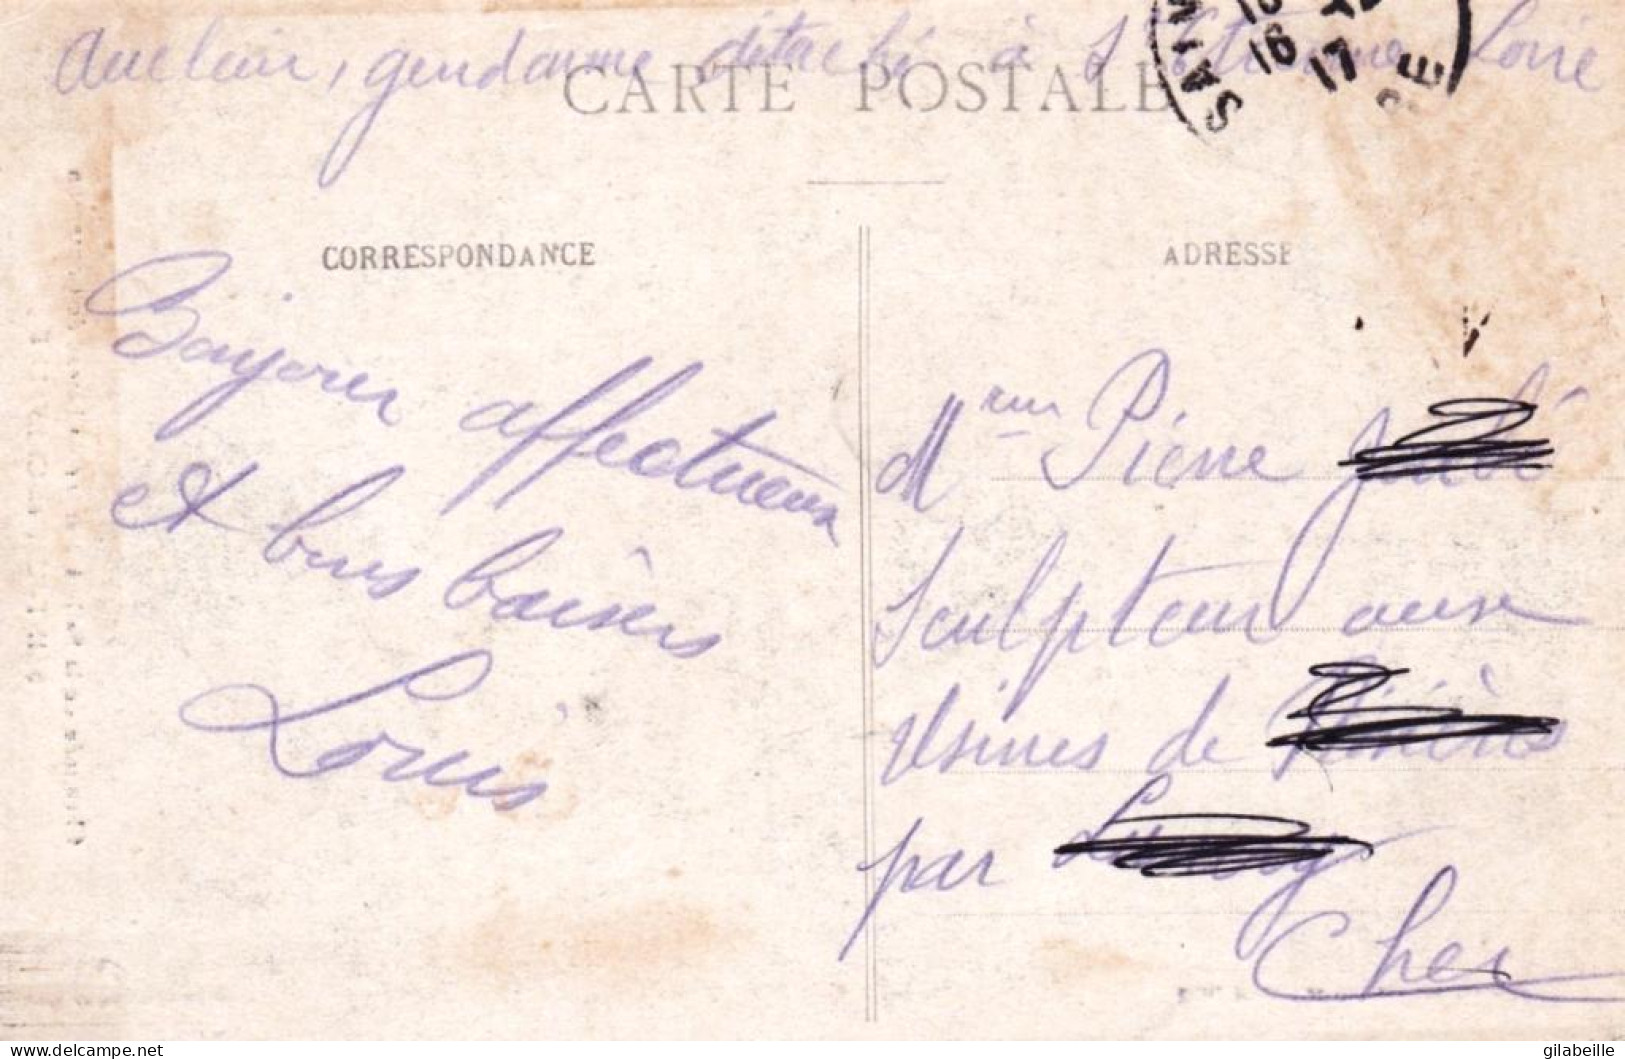 Auclair, gendarme détaché à St Etienne Loire
CARTE POSTALE
CORRESPONDANCE
ADRESSE
Bonjour affectueux
et bons baisers
Louis
Mme Pierre
Sculpteur aux
Usines de
par
Cher
delcampe.net
gilabeille